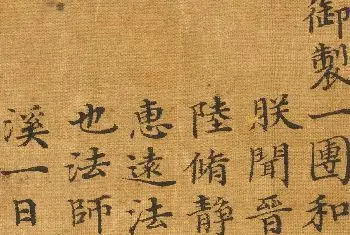 御製一團和
朕聞晉
陸脩靜
惠遠法
也法師
溪一日